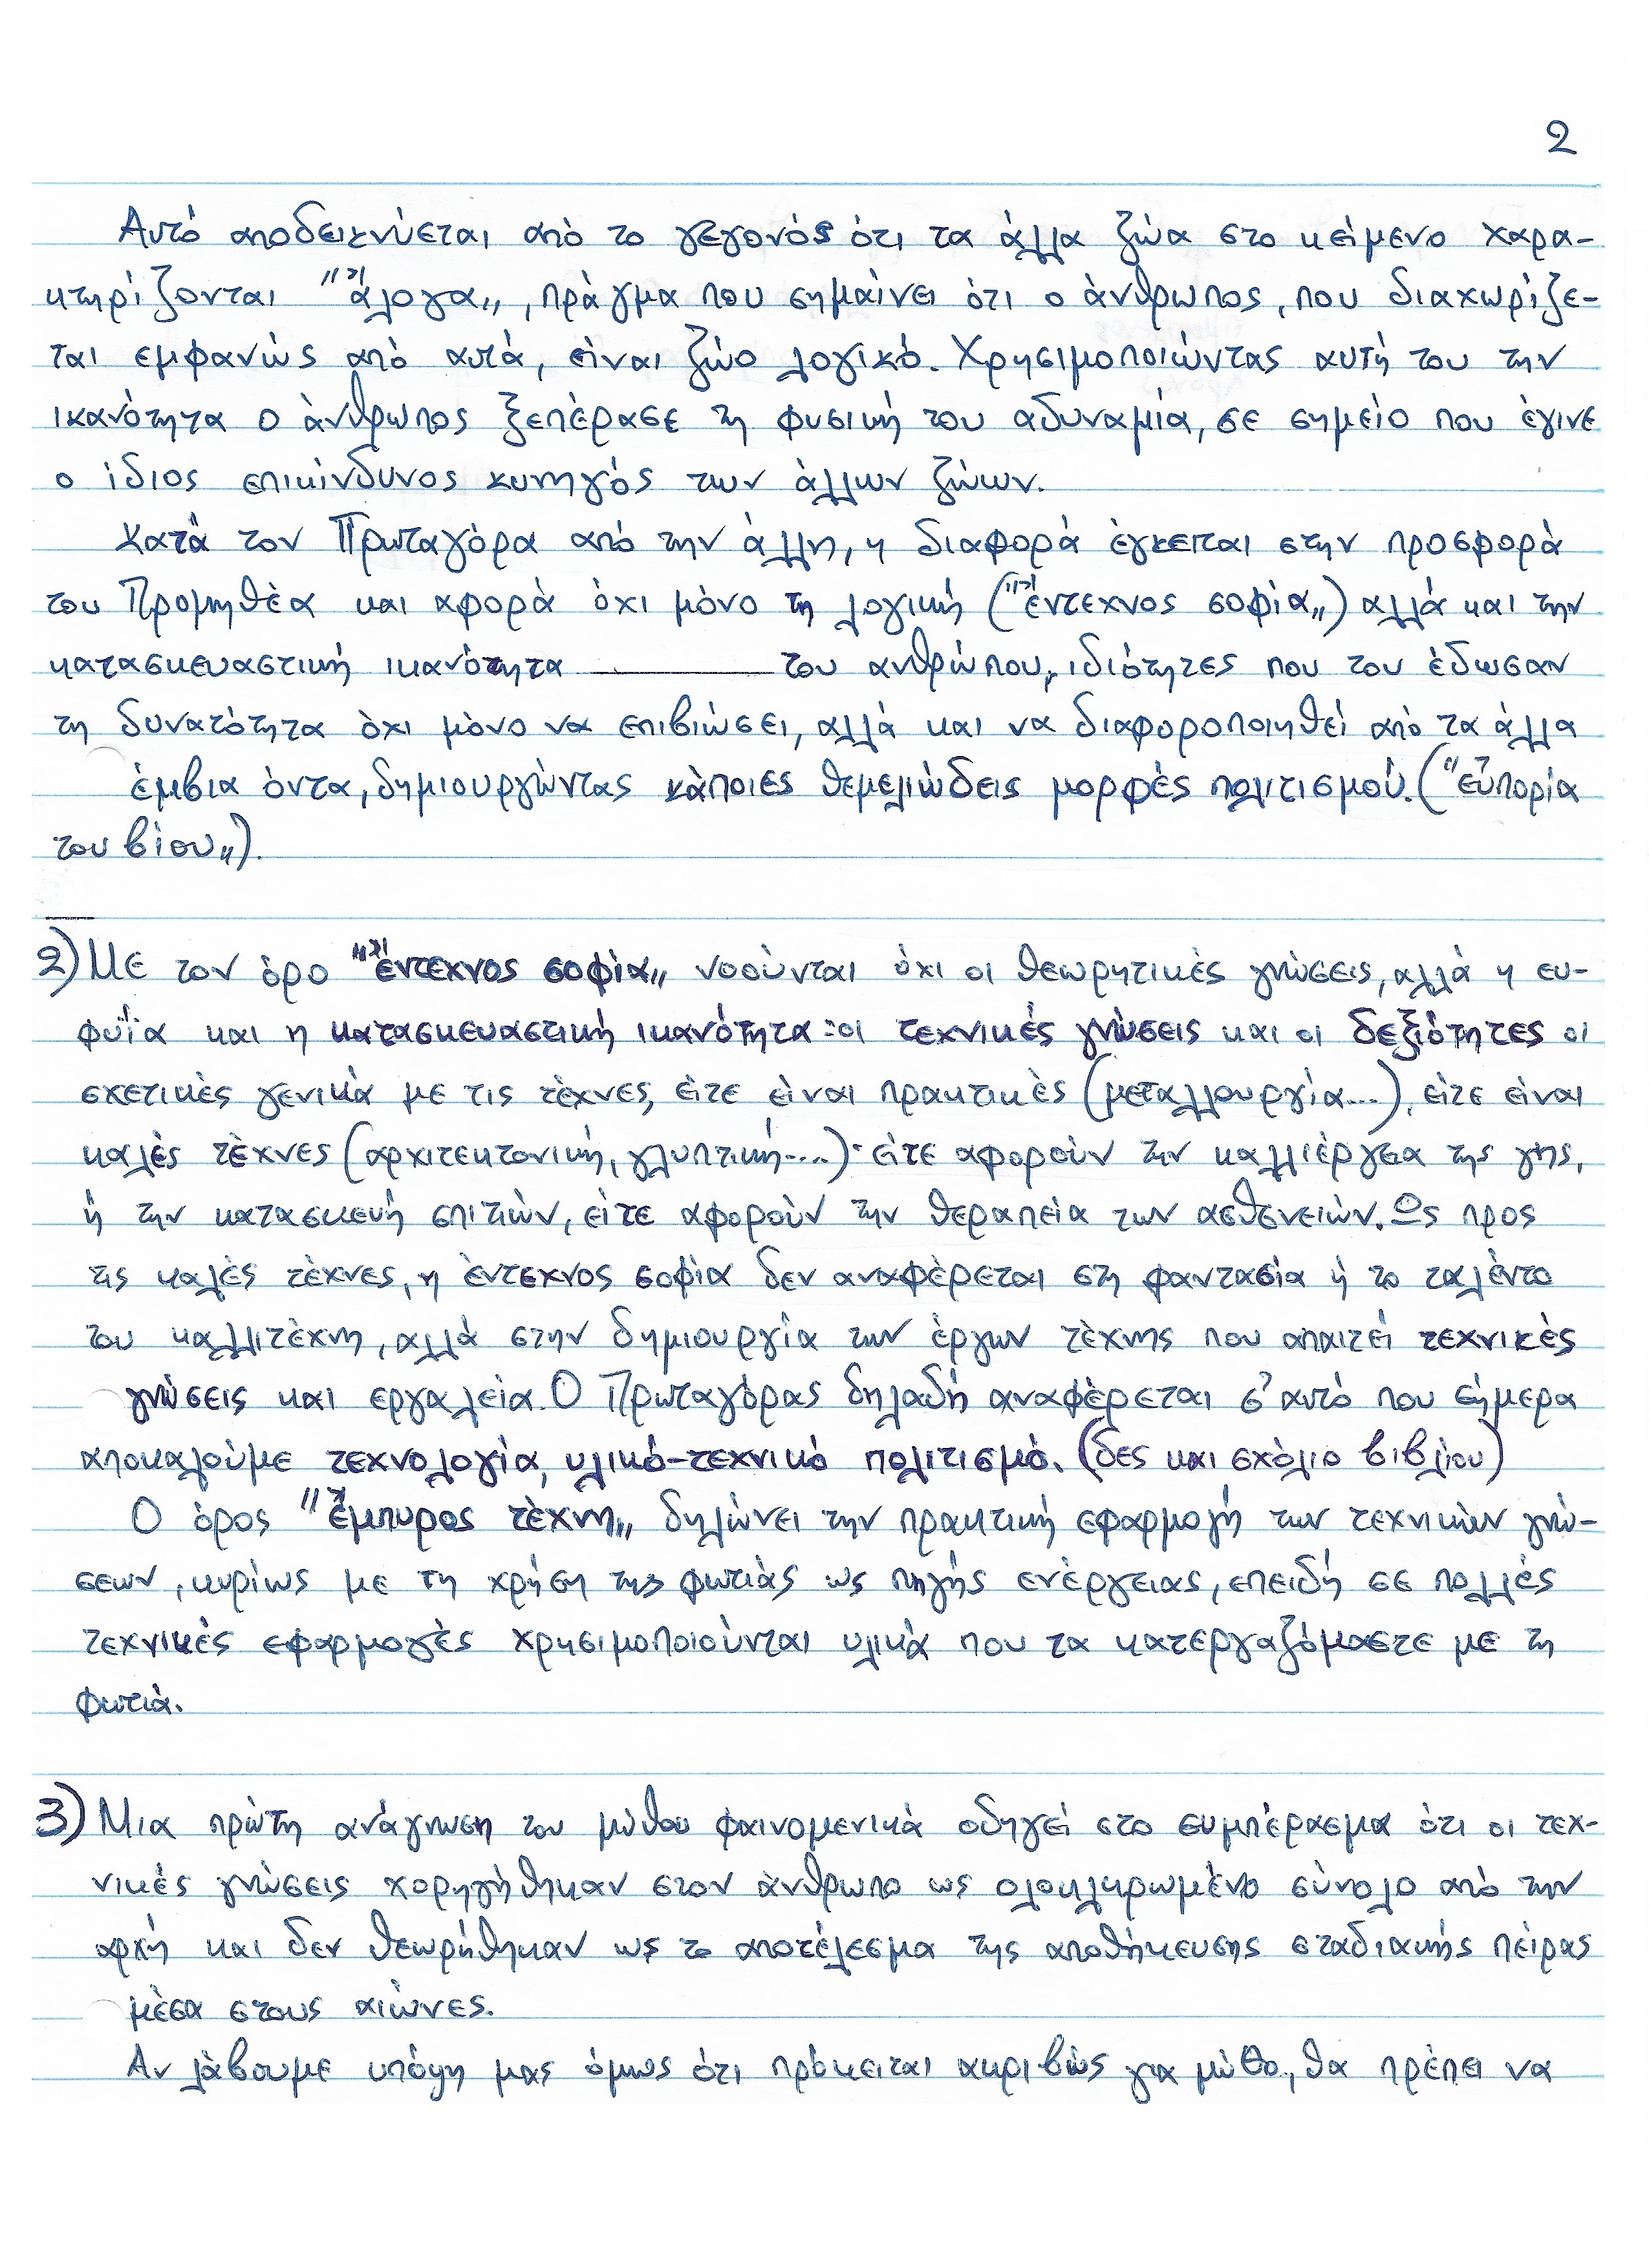 2
Αυτό αποδεικνύεται από το γεγονός ότι τα άλλα ζώα στο κείμενο χαρα-
κτηρίζονται "ἄλογα„, πράγμα που σημαίνει ότι ο άνθρωπος, που διαχωρίζε-
ται εμφανώς από αυτά, είναι ζώο λογικό. Χρησιμοποιώντας αυτή του την
ικανότητα ο άνθρωπος ξεπέρασε τη φυσική του αδυναμία, σε σημείο που έγινε
ο ίδιος επικίνδυνος κυνηγός των άλλων ζώων.
Κατά τον Πρωταγόρα από την άλλη, η διαφορά έγκειται στην προσφορά
του Προμηθέα και αφορά όχι μόνο τη λογική ("ἔντεχνος σοφία„) αλλά και την
κατασκευαστική ικανότητα του ανθρώπου, ιδιότητες που του έδωσαν
τη δυνατότητα όχι μόνο να επιβιώσει, αλλά και να διαφοροποιηθεί από τα άλλα
έμβια όντα, δημιουργώντας κάποιες θεμελιώδεις μορφές πολιτισμού. ("εὐπορία
του βίου„).
2) Με τον όρο "ἔντεχνος σοφία„ νοούνται όχι οι θεωρητικές γνώσεις, αλλά η ευ-
φυΐα και η κατασκευαστική ικανότητα: οι τεχνικές γνώσεις και οι δεξιότητες οι
σχετικές γενικά με τις τέχνες, είτε είναι πρακτικές (μεταλλουργία...), είτε είναι
καλές τέχνες (αρχιτεκτονική, γλυπτική....)· είτε αφορούν την καλλιέργεια της γης,
ή την κατασκευή σπιτιών, είτε αφορούν την θεραπεία των ασθενειών. Ως προς
τις καλές τέχνες, η έντεχνος σοφία δεν αναφέρεται στη φαντασία ή το ταλέντο
του καλλιτέχνη, αλλά στην δημιουργία των έργων τέχνης που απαιτεί τεχνικές
γνώσεις και εργαλεία. Ο Πρωταγόρας δηλαδή αναφέρεται σ' αυτό που σήμερα
αποκαλούμε τεχνολογία, υλικό-τεχνικό πολιτισμό. (δες και σχόλιο βιβλίου)
Ο όρος "ἔμπυρος τέχνη„ δηλώνει την πρακτική εφαρμογή των τεχνικών γνώ-
σεων, κυρίως με τη χρήση της φωτιάς ως πηγής ενέργειας, επειδή σε πολλές
τεχνικές εφαρμογές χρησιμοποιούνται υλικά που τα κατεργαζόμαστε με τη
φωτιά.
3) Μια πρώτη ανάγνωση του μύθου φαινομενικά οδηγεί στο συμπέρασμα ότι οι τεχ-
νικές γνώσεις χορηγήθηκαν στον άνθρωπο ως ολοκληρωμένο σύνολο από την
αρχή και δεν θεωρήθηκαν ως το αποτέλεσμα της αποθήκευσης σταδιακής πείρας
μέσα στους αιώνες.
Αν λάβουμε υπόψη μας όμως ότι πρόκειται ακριβώς για μύθο, θα πρέπει να